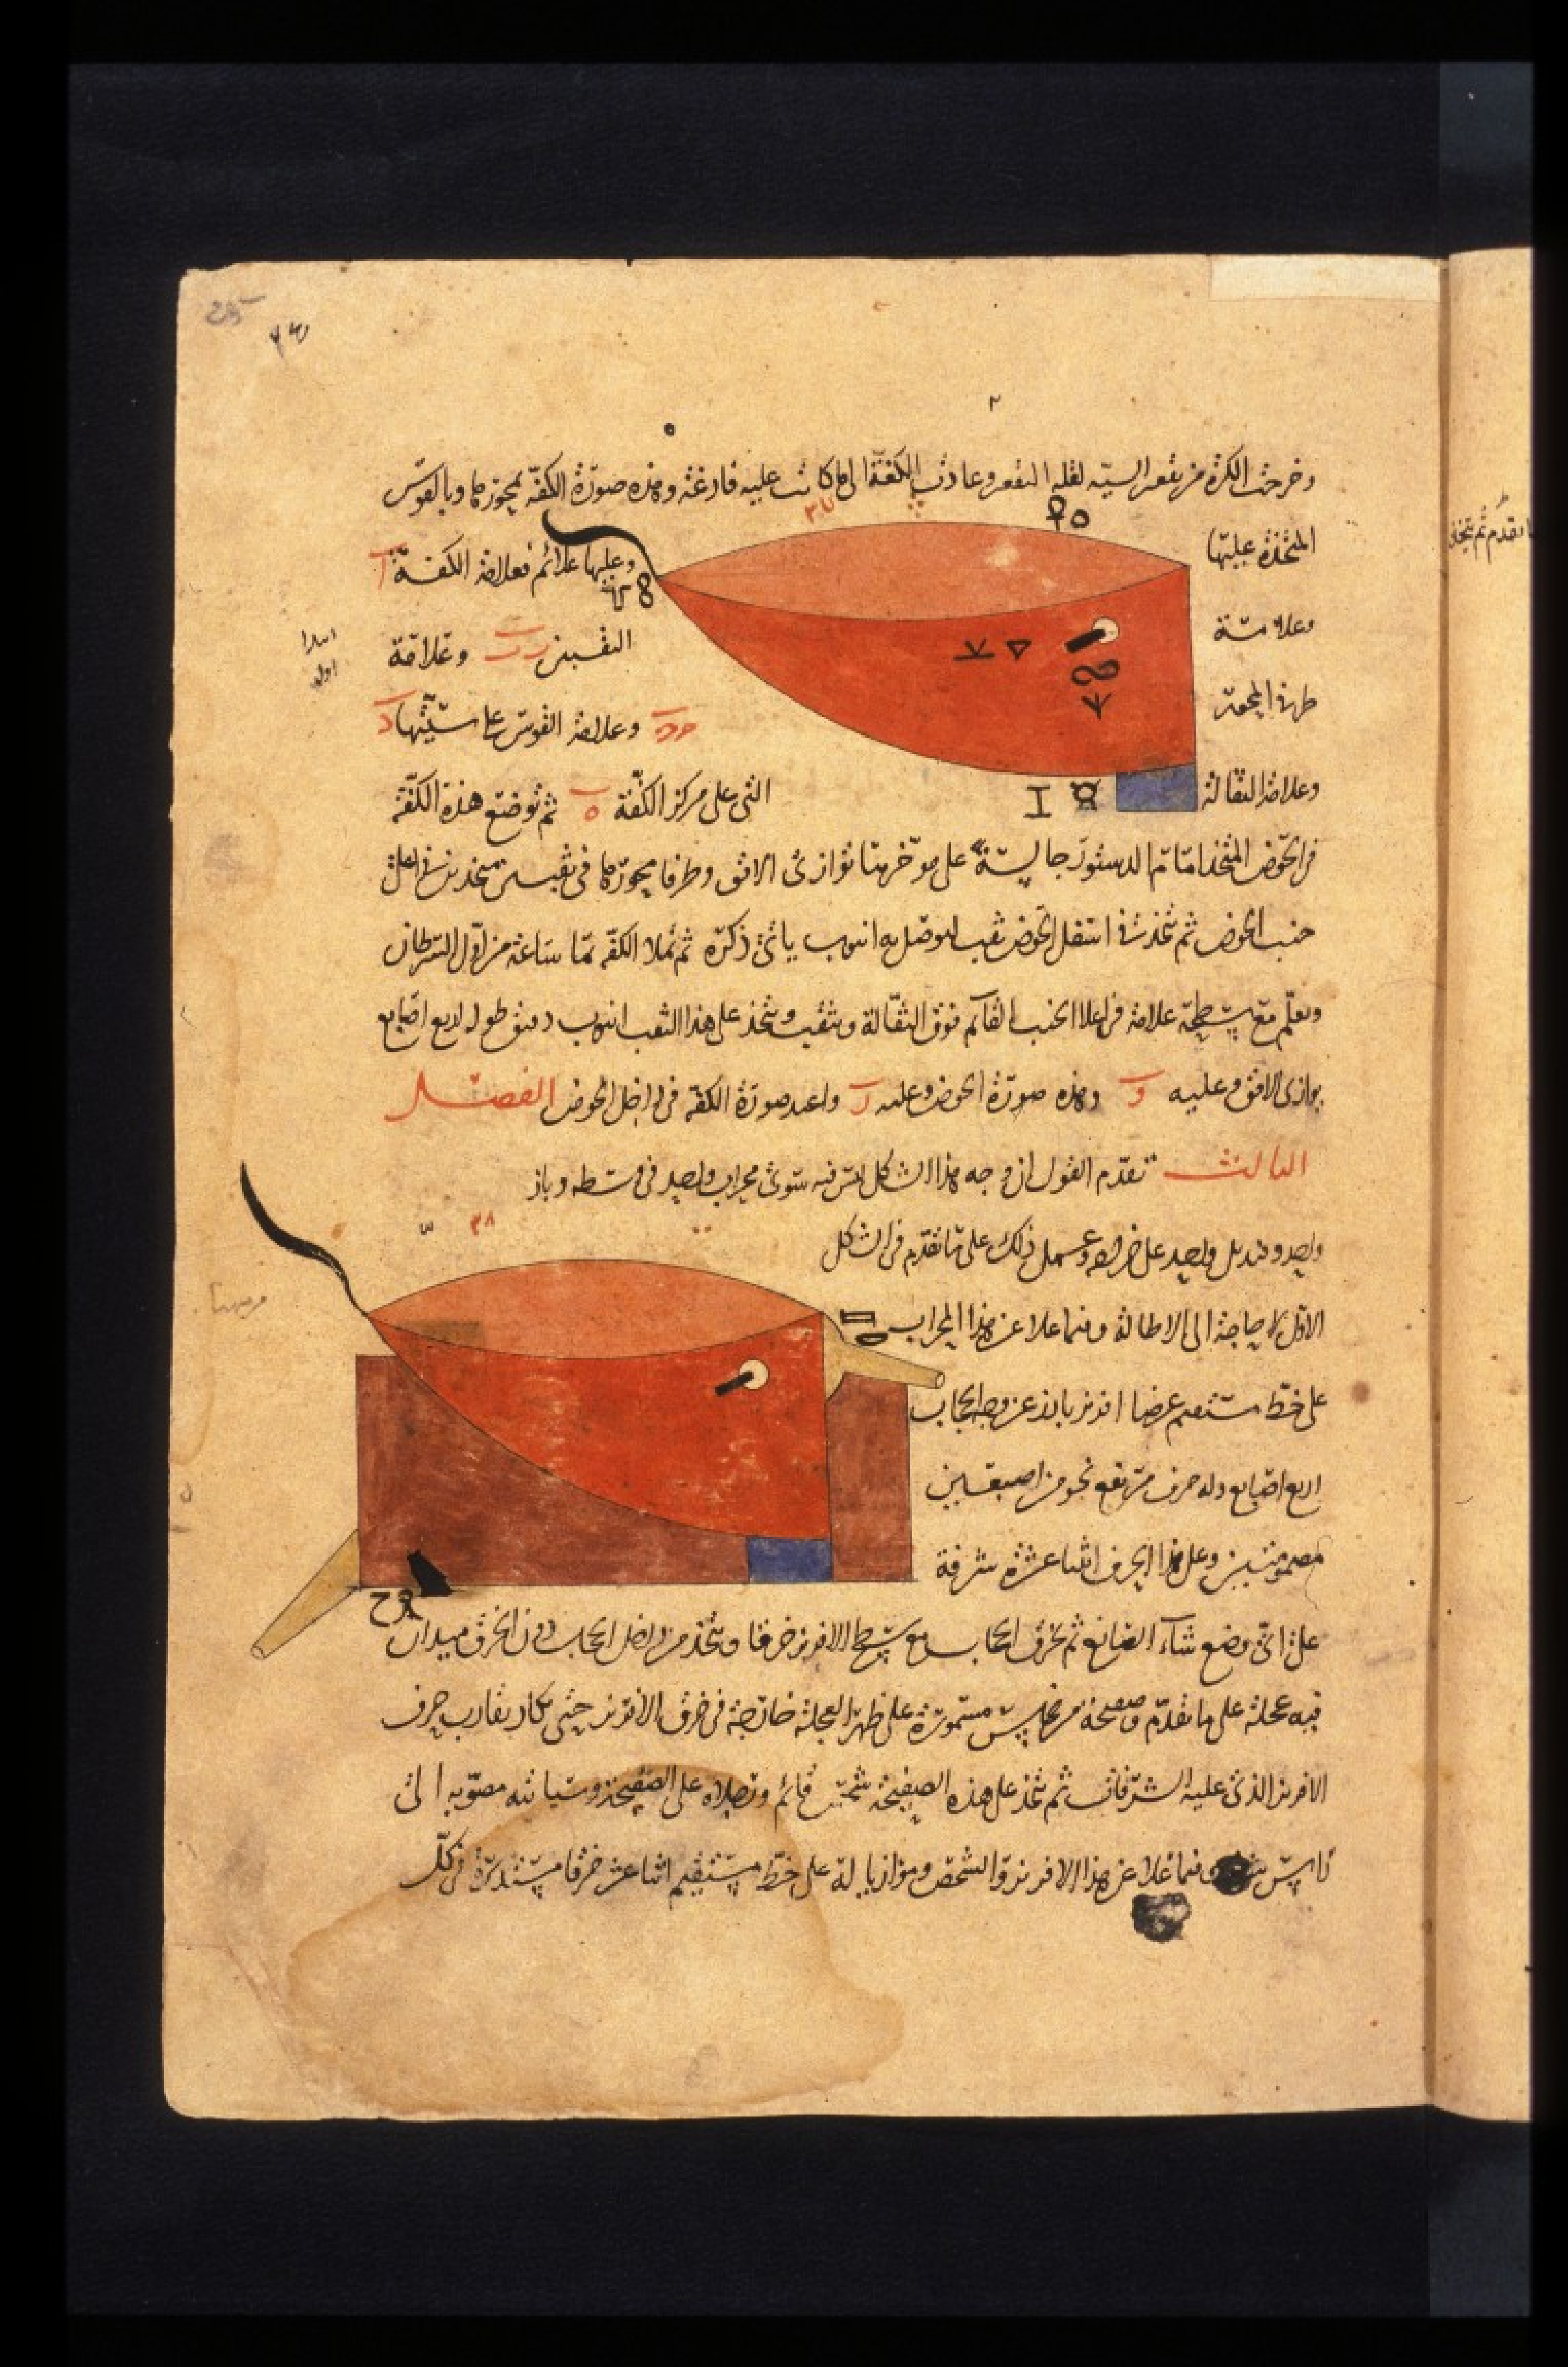 وخرجت الكرة من تقعر السية لقلة التقعر وعادت الكفة الى ما كانت عليه فارغة وهذه صورة الكفة بمحورها وبالقوس
المتخذة عليها
وعليها علائم فعلامة الكفة آ
وعلامة
الثقبين ب وعلامة
طرفي المحور
وعلامة القوس على سيتها د
وعلامة الثقالة
التي على مركز الكفة ه ثم توضع هذه الكفة
في الحوض المتخذ امام الدستور جالسة على مؤخرها توازى الافق وطرفا محورها في ثقبين متخذين في اعلى
جنب الحوض ثم تتخذ في اسفل الحوض ثقب ليوصل به انبوب يأتي ذكره ثم تملا الكفة بماء ساعة من اول السرطان
وتعلم مع سطحه علامة في اعلا الجنب القائم فوق الثقالة ويثقب ويتخذ على هذا الثقب انبوب دقيق طوله اربع اصابع
يوازى الافق وعليه و وهذه صورة الحوض وعليه ز واعيد صورة الكفة في داخل الحوض الفصل
الثالث تقدم القول ان وجه هذا الشكل ليس فيه سوى محراب واحد في وسطه وباز
واحد وقنديل واحد على خرافه وعمل ذلك على ما تقدم في الشكل
الاول لا حاجة الى الاطالة وفيما علا عن هذا المحراب
على خط مستقيم عرضا افريز بارز عن وجه الحجاب
اربع اصابع وله حرف مرتفع نحو من اصبعين
مضمومتين وعلى هذا الحرف اثنا عشرة شرفة
على اي وضع شاء الصانع ثم يخرق الحجاب مع سطح الافريز خرقا ويتخذ من داخل الحجاب دون الخرق ميدان
فيه عجلة على ما تقدم وصفيحة من نحاس مسمورة على ظهر العجلة خارجة في خرق الافريز حتى تكاد تقارب حرف
الافريز الذي عليه الشرفات ثم تتخذ على هذه الصفيحة شخص قائم ورجلاه على الصفيحة وسبابته مصوبة الى
راس وفيما علا عن هذا الافريز والشخص وموازيا له على خط مستقيم اثنا عشر خرقا مستديرة في كل
٣٧
٣٨